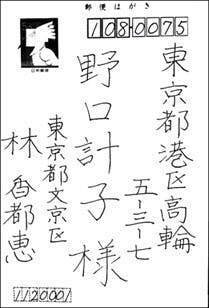 郵便はがき
108-0075
東京都港区高輪
五-三-七
野口計子様
東京都文京区
林香都恵
1120001